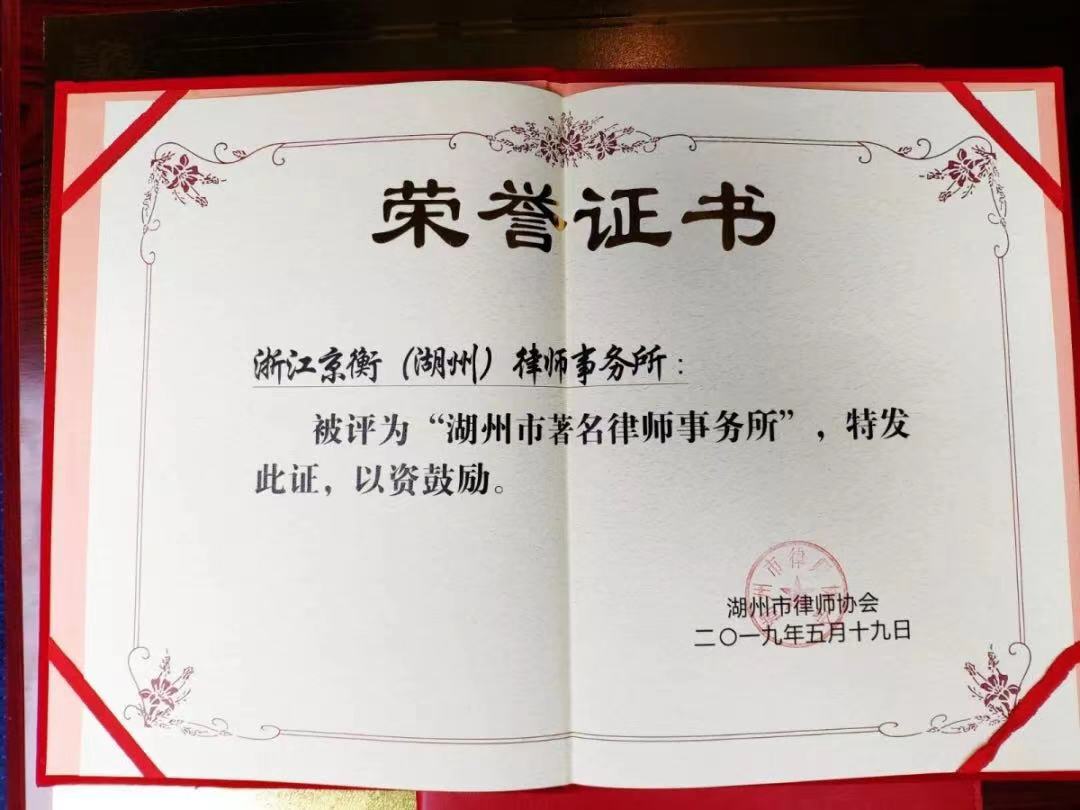 荣誉证书
浙江京衡（湖州）律师事务所：
被评为“湖州市著名律师事务所”，特发
此证，以资鼓励。
湖州市律师协会
二〇一九年五月十九日